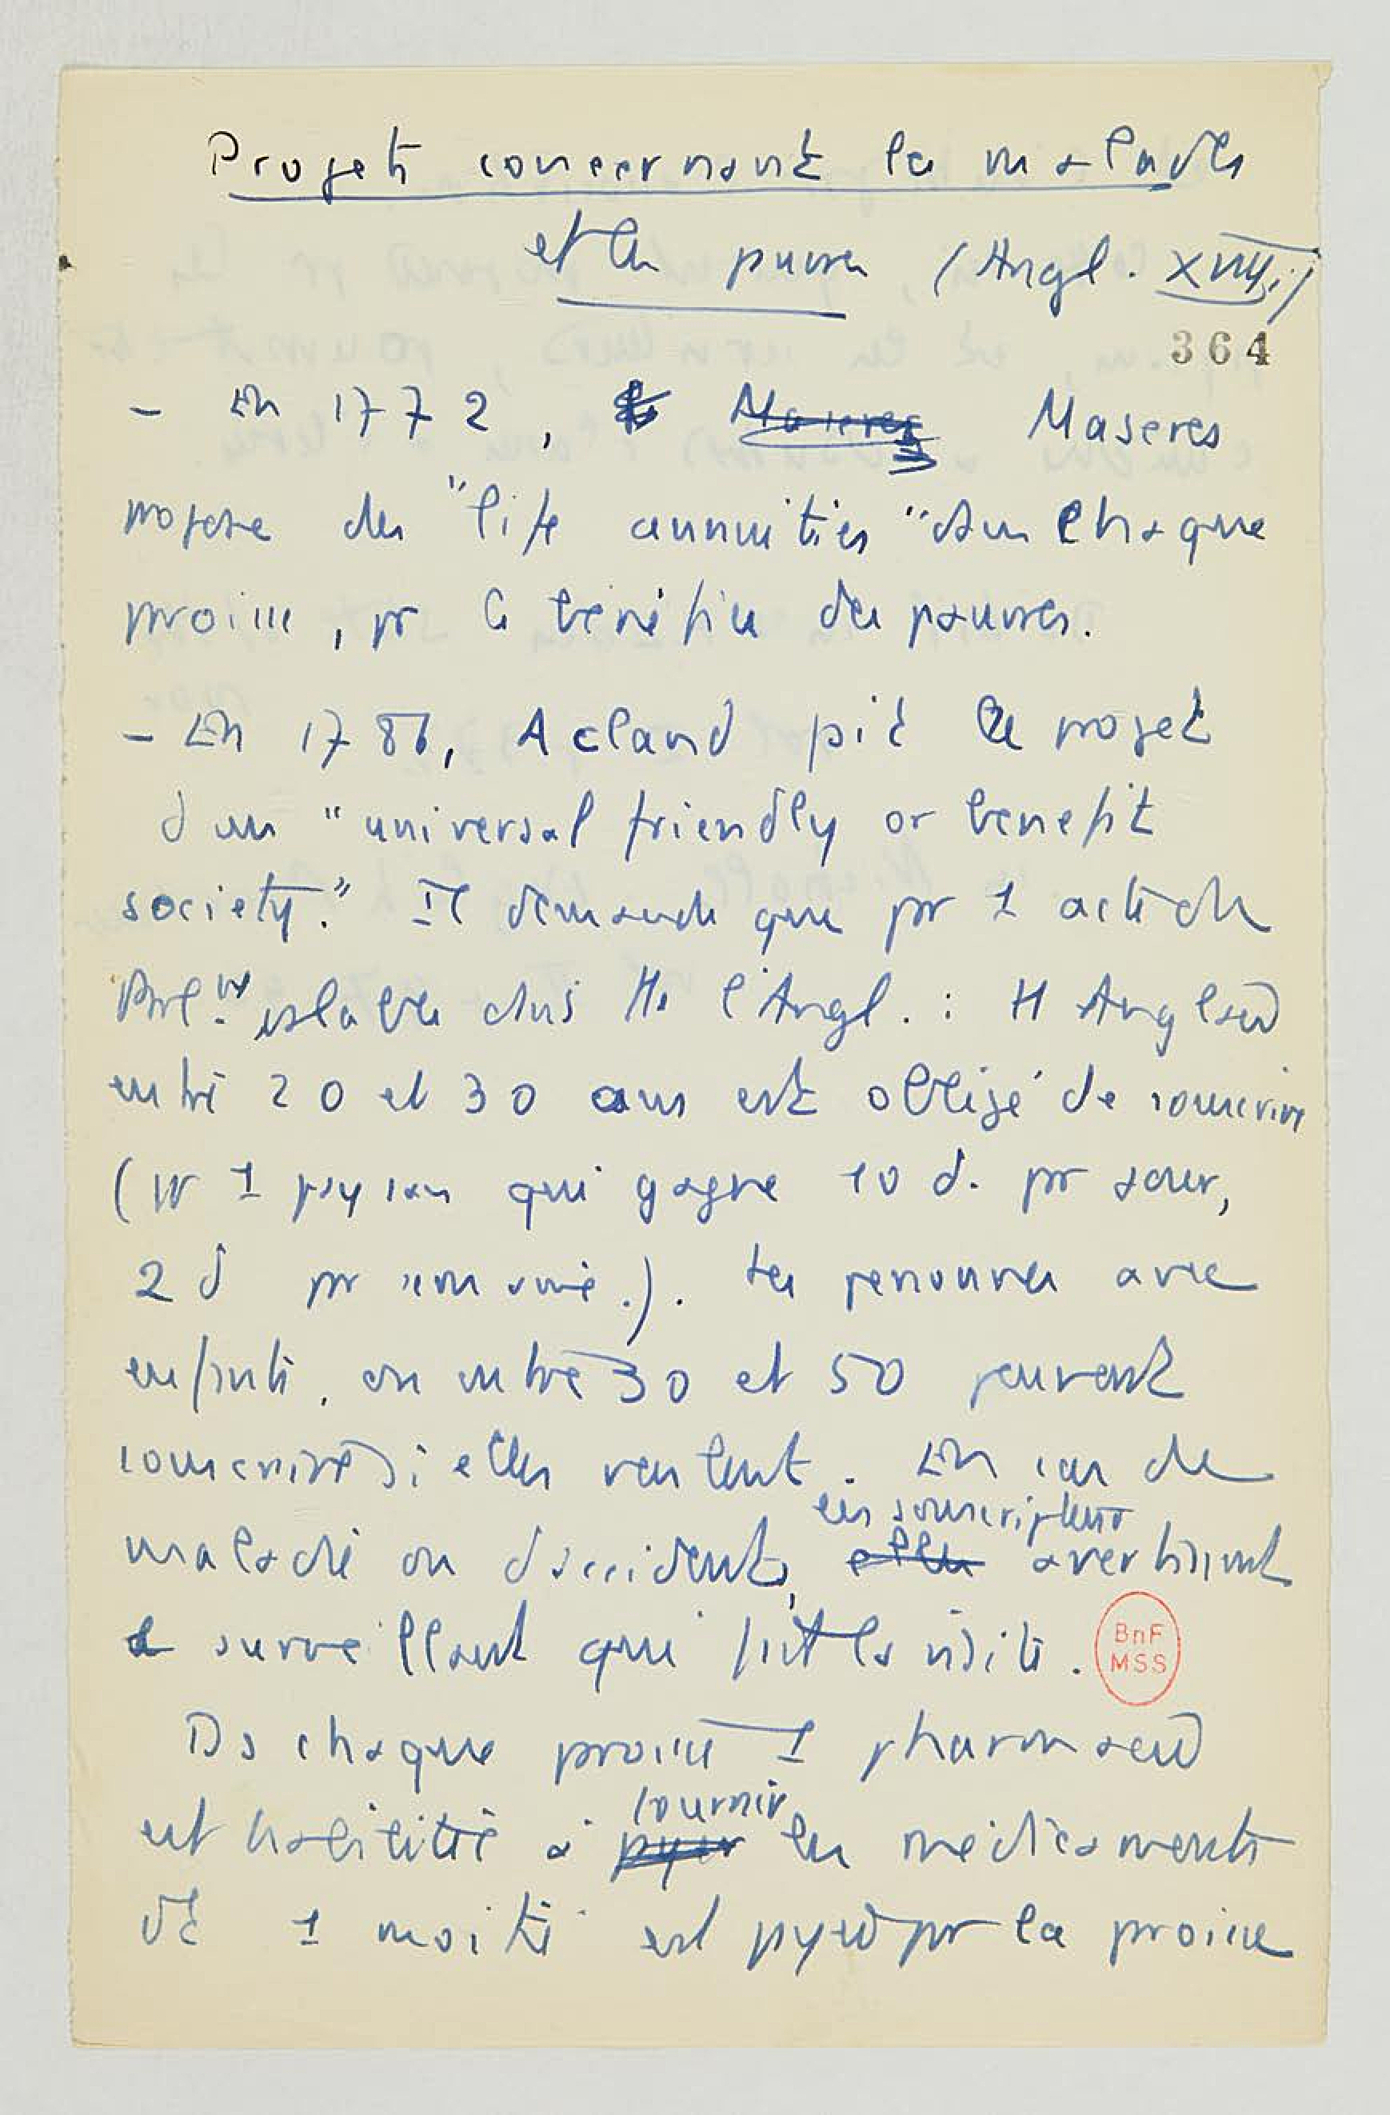 Projets concernant les malades
et les pauvres (Angl. XVIII.)
364
- En 1772, Maseres Maseres
propose des "life annuities" dans chaque
paroisse, pr le bénéfice des pauvres.
- En 1786, Acland fit le projet
d'un "universal friendly or benefit
society." Il demande que par 1 acte du
Parlt valable dans tte l'Angl. : tt Anglais
entre 20 et 30 ans est obligé de souscrire
(pr 1 paysan qui gagne 10 d. par jour,
2 d par semaine.). Les personnes avec
enfants, ou entre 30 et 50 peuvent
souscrire si elles veulent. En cas de
les souscripteurs
maladie ou d'accident, elles avertissent
le surveillant qui fait la visite.
BnF
MSS
Ds chaque paroisse 1 pharmacien
fournir
est habilité à payer les médicaments
dt 1 moitié est payée par la paroisse